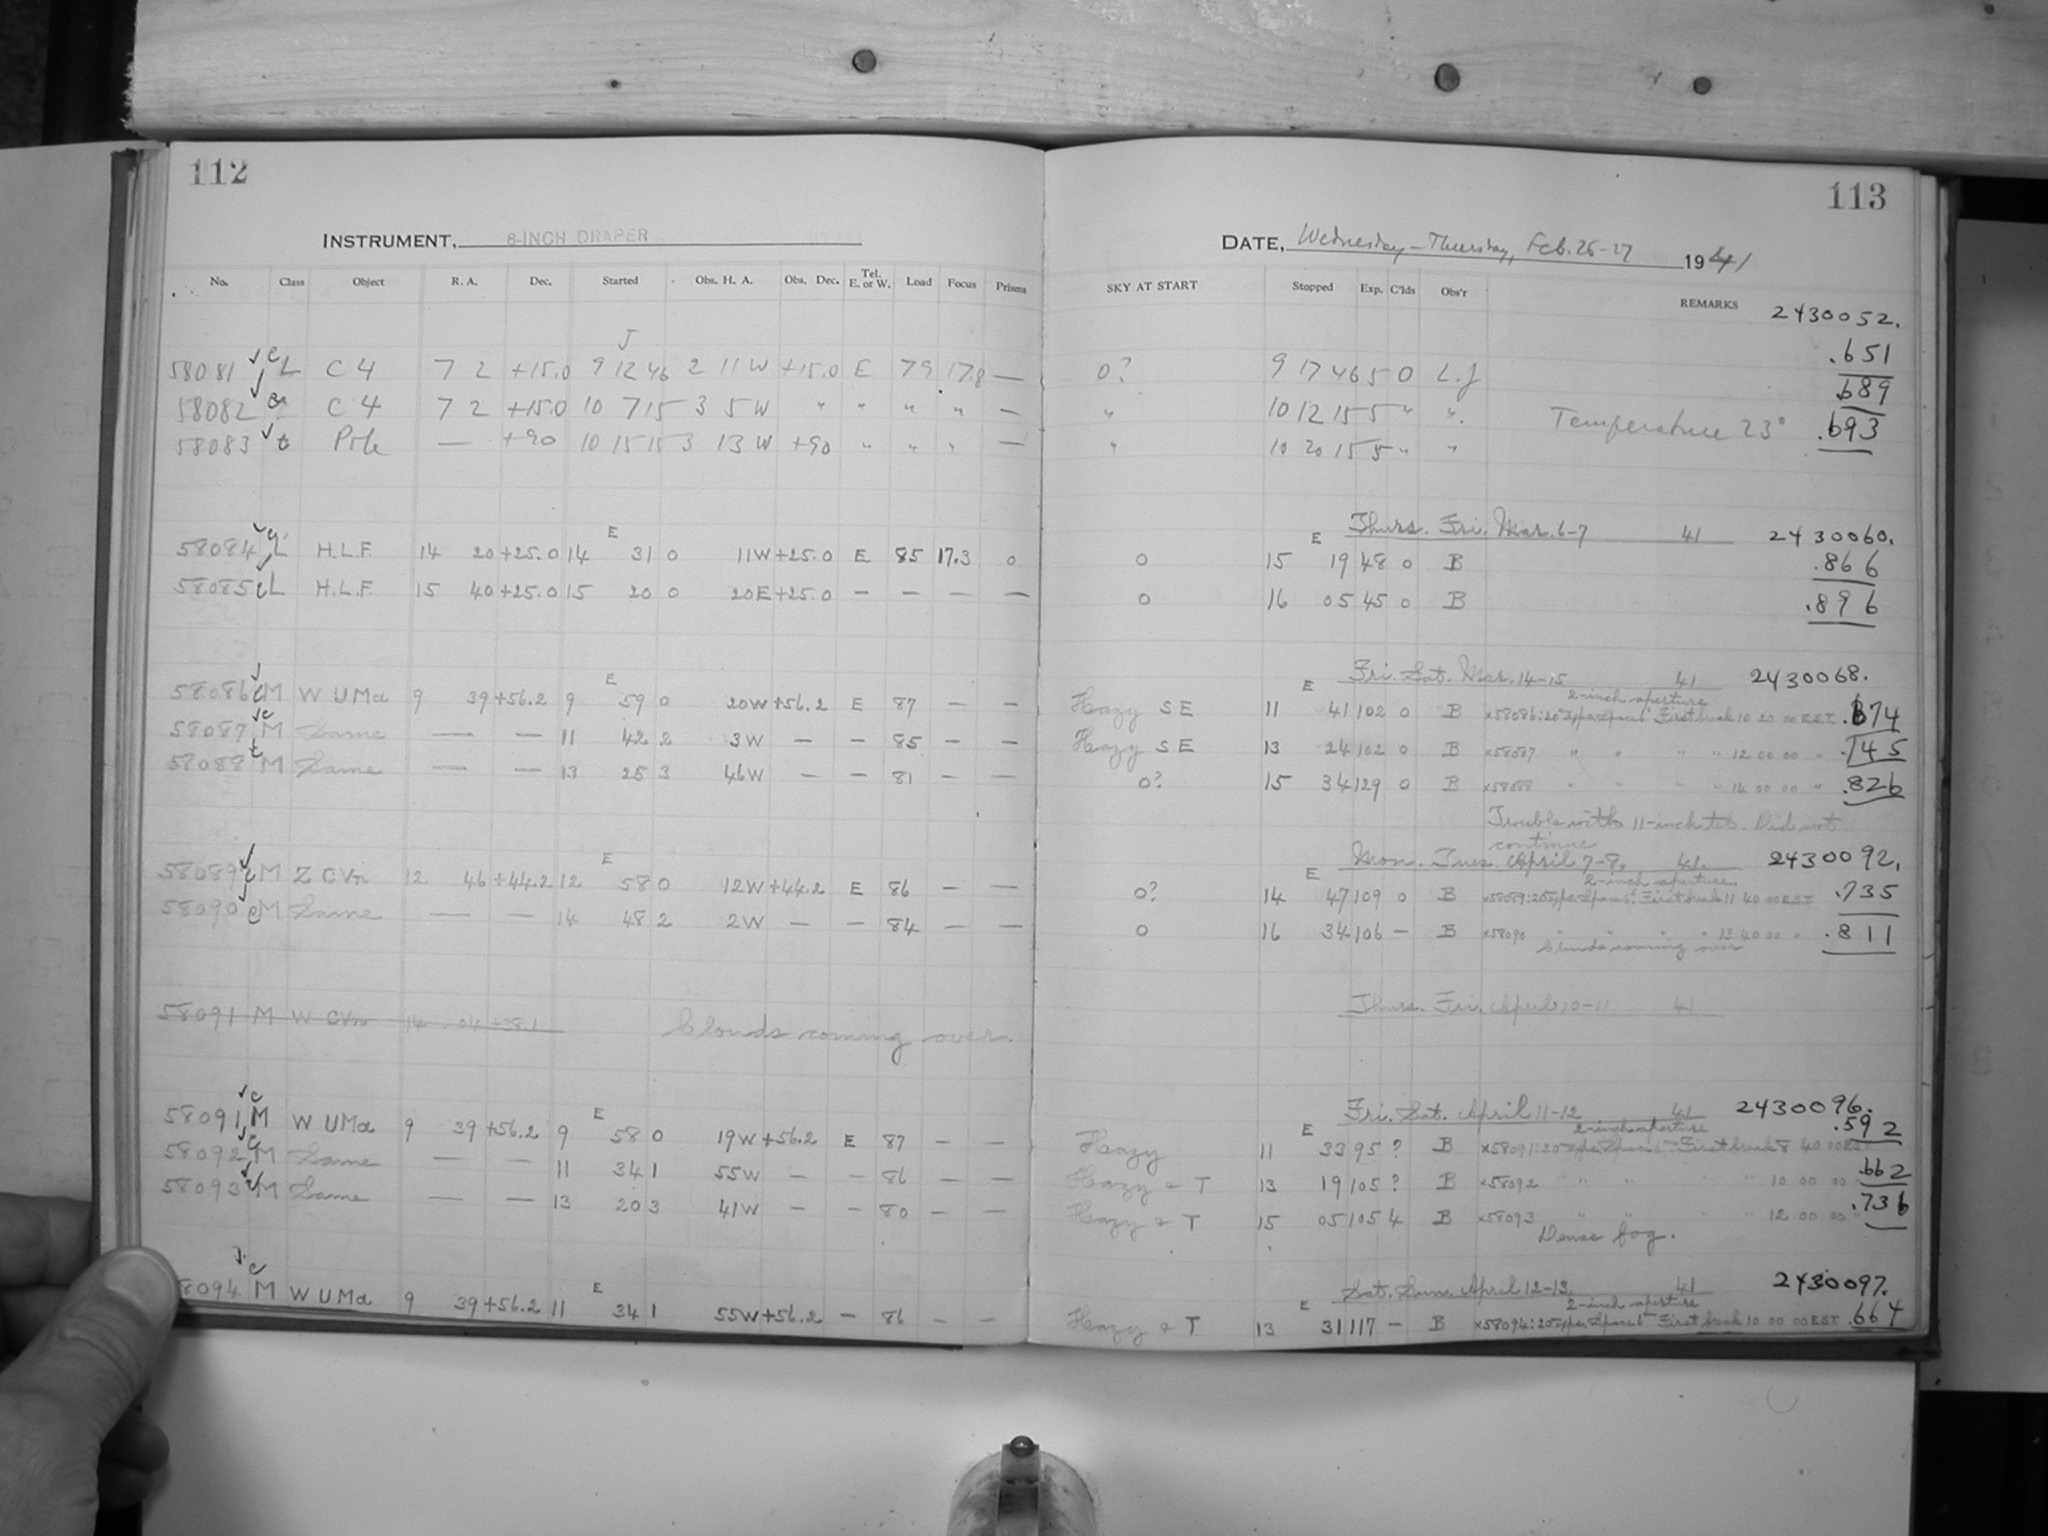 112
INSTRUMENT, 8-INCH DRAPER
No. Class Object R. A. Dec. Started Obs. H. A. Obs. Dec. Tel. E. or W. Load Focus Prisms
J
58081 L C 4 7 2 +15.0 9 12 46 2 11 W +15.0 E 79 17.8 —
58082 C 4 7 2 +15.0 10 7 15 3 5 W " " " " —
58083 t Pole — +90 10 15 15 3 13 W +90 " " " —
E
58084 L H.L.F. 14 20 +25.0 14 31 0 11W +25.0 E 85 17.3 0
58085 L H.L.F. 15 40 +25.0 15 20 0 20E +25.0 — — — —
E
58086 M W UMa 9 39 +56.2 9 59 0 20W +56.2 E 87 — —
58087 M Same — — 11 42 2 3W — — 85 — —
58088 M Same — — 13 25 3 46W — — 81 — —
E
58089 M Z CVn 12 46 +44.2 12 58 0 12W +44.2 E 86 — —
58090 M Same — — 14 48 2 2W — — 84 — —
58091 M W CVn 14 04 +38.1 Clouds coming over.
E
58091 M W UMa 9 39 +56.2 9 58 0 19W +56.2 E 87 — —
58092 M Same — — 11 34 1 55W — — 86 — —
58093 M Same — — 13 20 3 41W — — 80 — —
E
58094 M W UMa 9 39 +56.2 11 34 1 55W +56.2 — 86 — —
113
DATE, Wednesday - Thursday, Feb. 26-27 1941
SKY AT START Stopped Exp. C'lds Obs'r REMARKS
2430052.
0? 9 17 46 5 0 L.J .651
" 10 12 15 5 " " Temperature 23° .689
" 10 20 15 5 " " .693
Thurs. Fri. Mar. 6-7 41 2430060.
E
0 15 19 48 0 B .866
0 16 05 45 0 B .896
Fri. Sat. Mar. 14-15 41 2430068.
E 2-inch aperture
Hazy S E 11 41 102 0 B x58086: First break 10 20 00 E.S.T. .674
Hazy S E 13 24 102 0 B x58087 " " " " 12 00 00 " .745
0? 15 34 129 0 B x58088 " " " " 14 00 00 " .826
Trouble with 11-inch tel. Did not
continue
Mon. Tues. April 7-8, 41. 2430092.
E 2-inch aperture
0? 14 47 109 0 B x58089: First break 11 40 00 E.S.T. .735
0 16 34 106 — B x58090 " " " " 13 40 00 " .811
Clouds coming over
Thurs. Fri. April 10-11 41
Fri. Sat. April 11-12 41 2430096.
E 2-inch aperture
Hazy 11 33 95 ? B x58091: First break 8 40 00 .592
Hazy + T 13 19 105 ? B x58092 " " " 10 00 00 .662
Hazy + T 15 05 105 4 B x58093 " " " 12 00 00 .736
Dense fog.
Sat. Sun. April 12-13, 41 2430097.
E 2-inch aperture
Hazy + T 13 31 117 — B x58094: First break 10 00 00 E.S.T. .664